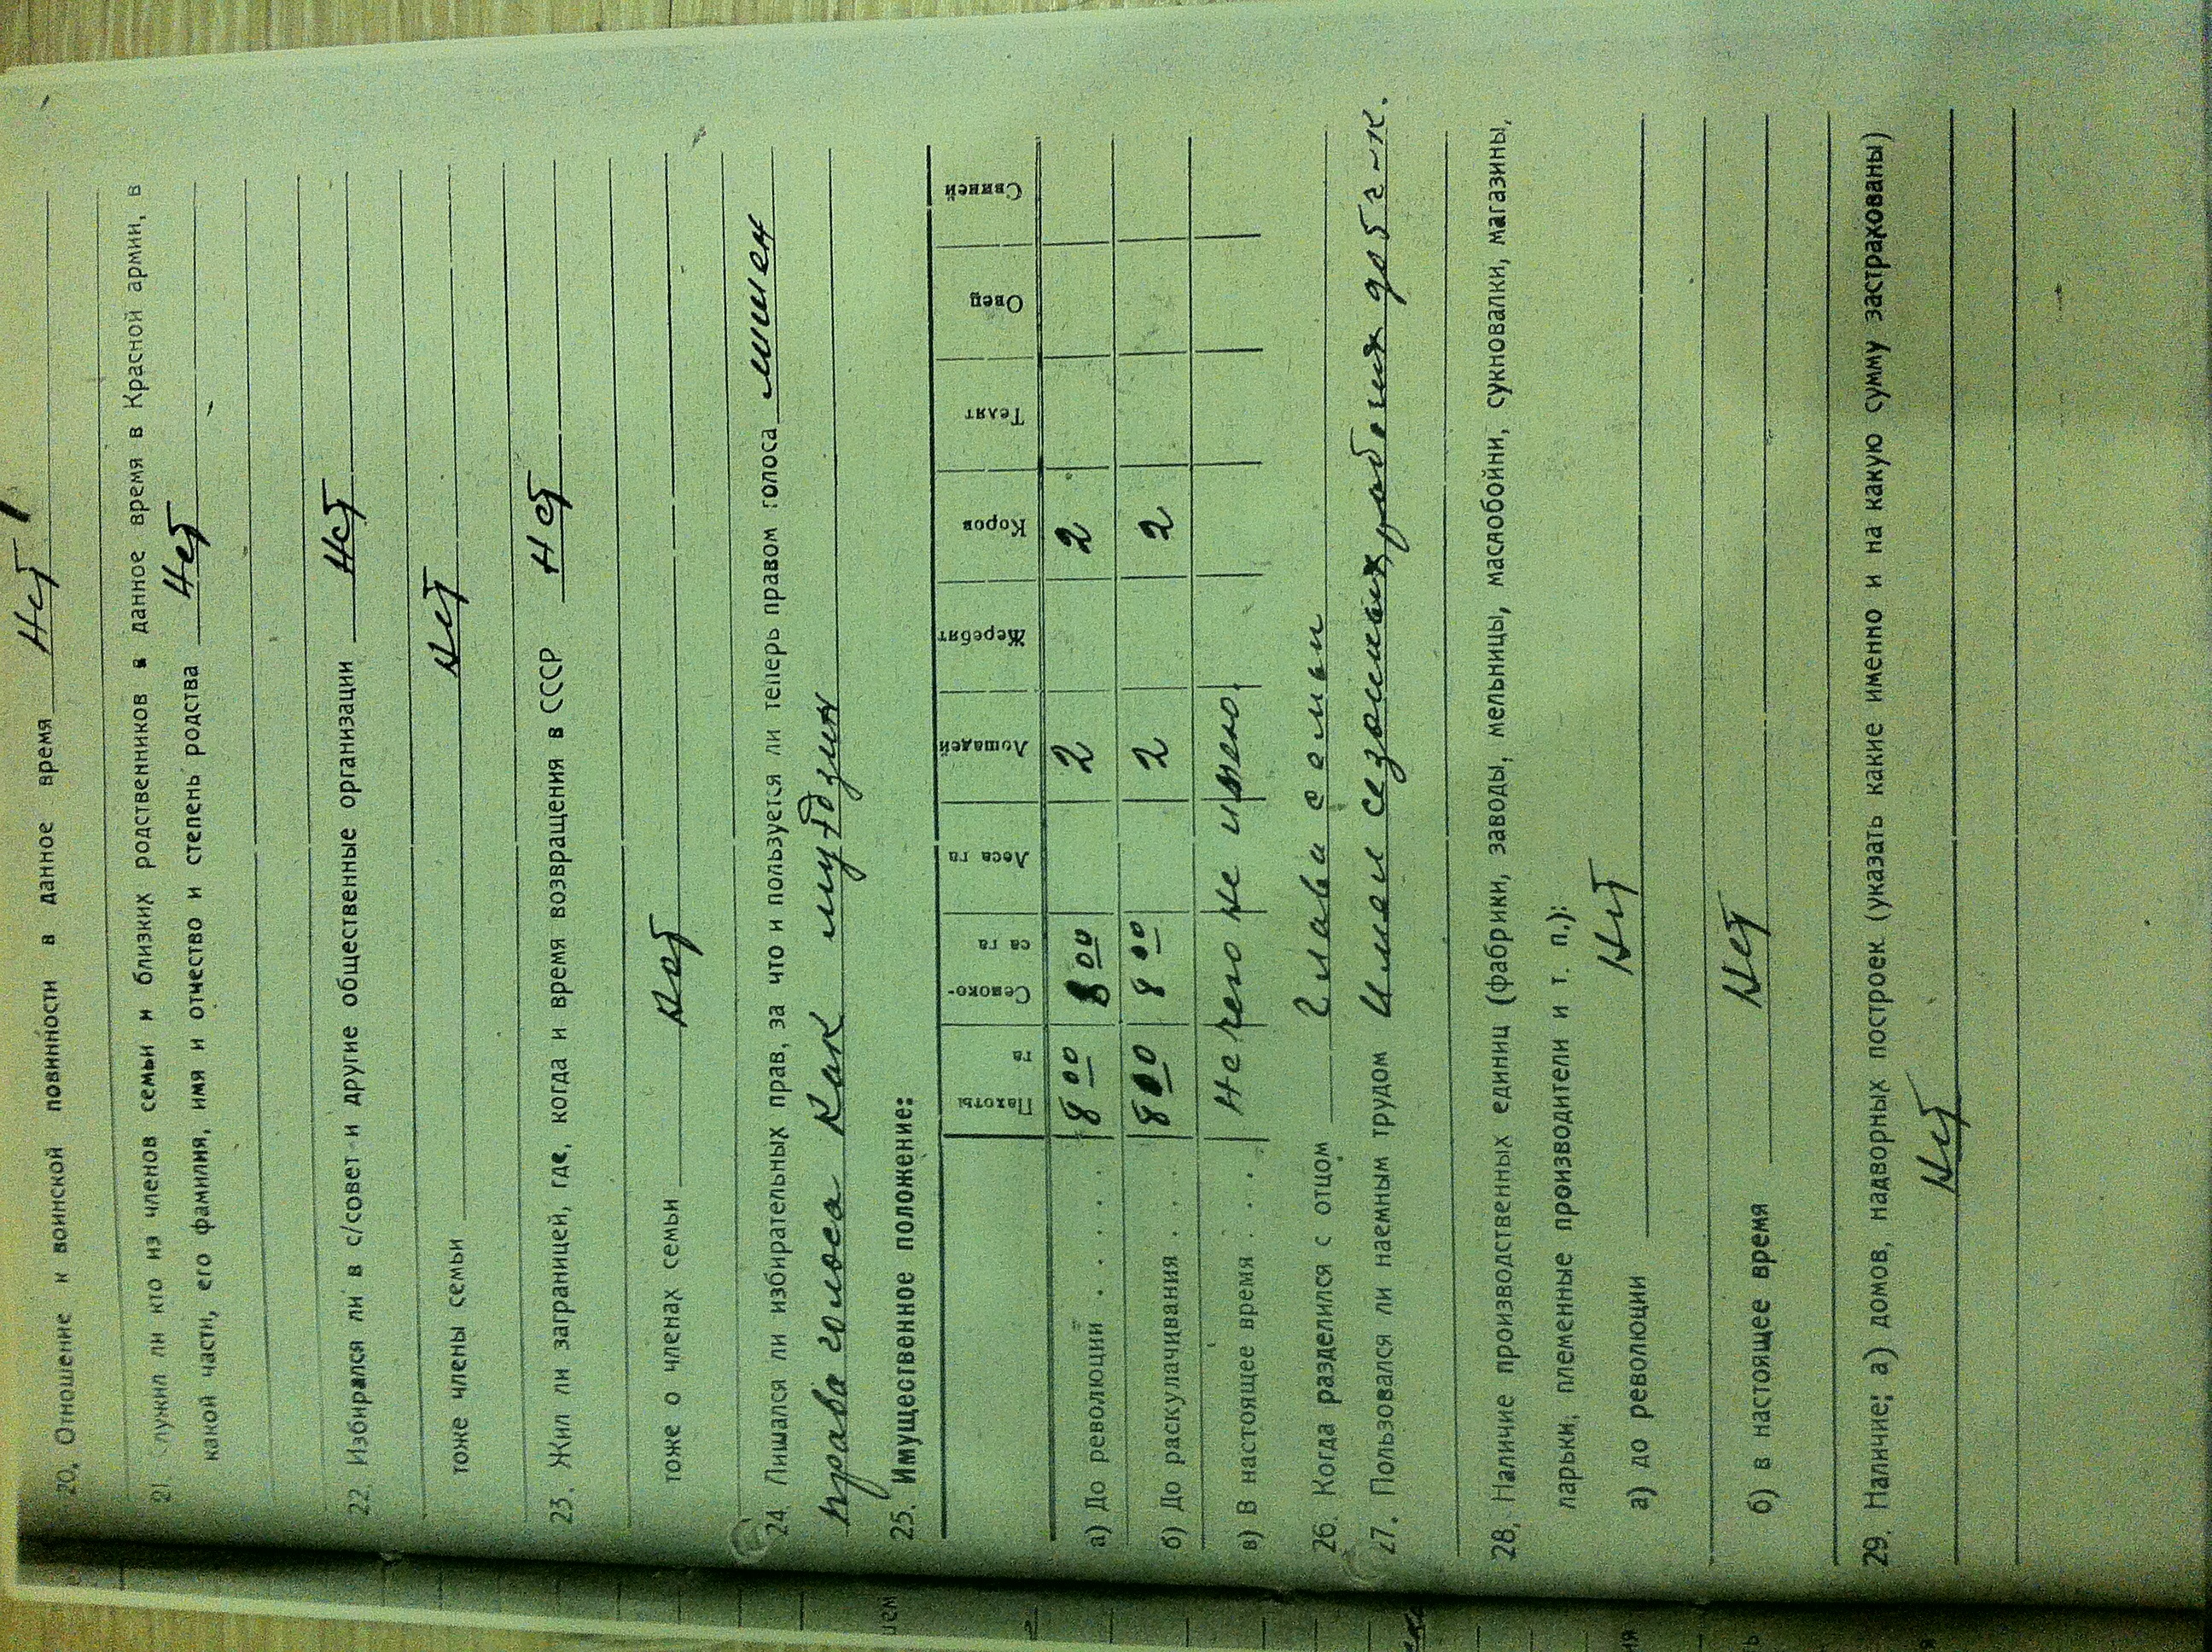 20. Отношение к воинской повинности в данное время Нет
21. Служил ли кто из членов семьи и близких родственников в данное время в Красной армии, в
какой части, его фамилия, имя и отчество и степень родства Нет
22. Избирался ли в с/совет и другие общественные организации Нет
тоже члены семьи Нет
23. Жил ли заграницей, где, когда и время возвращения в СССР Нет
тоже о членах семьи Нет
24. Лишался ли избирательных прав, за что и пользуется ли теперь правом голоса лишен
права голоса как
25. Имущественное положение:
Пахоты га Сенокоса га Леса га Лошадей Жеребят Коров Телят Овец Свиней
а) До революции . . . . . 8 00 8 00 2 2
б) До раскулачивания . . . 8 00 8 00 2 2
в) В настоящее время . . . Нечего не имею.
26. Когда разделился с отцом Глава семьи
27. Пользовался ли наемным трудом Имел сезонных
28. Наличие производственных единиц (фабрики, заводы, мельницы, маслобойни, сукновалки, магазины,
ларьки, племенные производители и т. п.):
а) до революции Нет
б) в настоящее время Нет
29. Наличие: а) домов, надворных построек (указать какие именно и на какую сумму застрахованы)
Нет